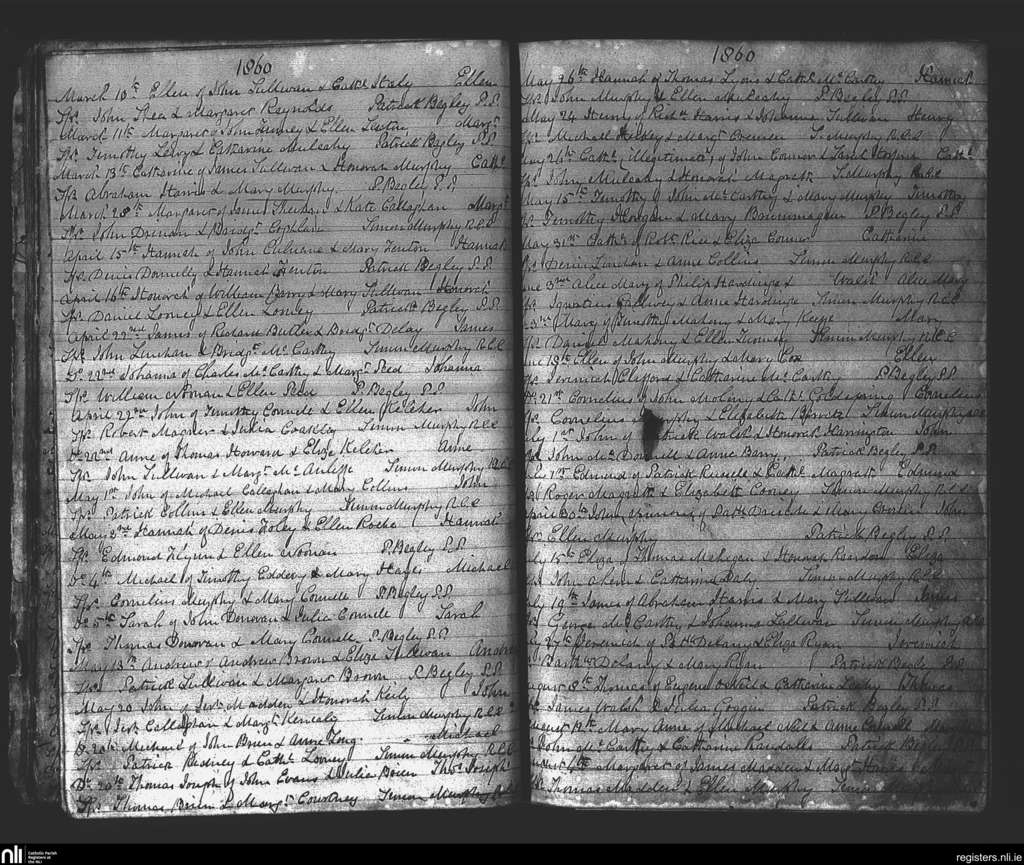 1860
March 10th Ellen of John Sullivan & Cathe Staly Ellen
Sps. John Shea & Margaret Reynolds Patrick Begley P.P.
March 11th Margaret of John & Ellen Margt
Sps. Timothy Leary & Catharine Mulcahy Patrick Begley P.P.
March 13th Catharine of James Sullivan & Honorah Murphy Cathe
Sps. Abraham Harris & Mary Murphy. P. Begley P.P.
March 28th Margaret of James Sheehan & Kate Callaghan Margt
Sps. John Drinan & Bridgt Simon Murphy R.C.C
April 15th Hannah of John Culhane & Mary Fenton Hannah
Sps. Denis Donnelly & Hannah Fenton Patrick Begley P.P.
April 16th Honorah of William Barry & Mary Sullivan Honorah
Sps. Daniel Looney & Ellen Looney Patrick Begley P.P.
April 22nd James of Richard Butler & Bridgt Delay James
Sps. John Linehan & Bridgt McCarthy Simon Murphy R.C.C
Do. 22nd Johanna of Charles McCarthy & Margt Reed Johanna
Sps. William Noonan & Ellen Reed P. Begley P.P.
April 22nd John of Timothy Connell & Ellen Keleher John
Sps. Robert Magner & Julia Coakley Simon Murphy R.C.C
Do 22nd Anne of Thomas Howard & Eliza Kelcher Anne
Sps. John Sullivan & Margt McAuliffe Simon Murphy R.C.C
May 1st John of Michael Callaghan & Mary Collins John
Sps. Patrick Collins & Ellen Murphy Simon Murphy R.C.C
May 2nd Hannah of Denis Foley & Ellen Roche Hannah
Sps. Edmond Flynn & Ellen Noonan P. Begley P.P.
Do 4th Michael of Timothy Eddery & Mary Hayes Michael
Sps. Cornelius Murphy & Mary Connell P. Begley P.P.
Do 5th Sarah of John Donovan & Julia Connell Sarah
Sps. Thomas Donovan & Mary Connell P. Begley P.P.
May 13th Andrew of Andrew Brown & Eliza Sullivan Andrew
Sps. Patrick Sullivan & Margaret Brown. P. Begley P.P.
May 20 John of Jerh Madden & Honorah Kiely John
Sps. Jerh Callaghan & Margt Kenealy Simon Murphy R.C.C
Do. 20th Michael of John Brien & Anne Long. Michael
Sps. Patrick & Cathe Looney Simon Murphy R.C.C
Do. 20th Thomas Joseph of John Evans & Julia Brien Thos Joseph
Sps. Thomas Brien & Margt Courtney Simon Murphy R.C.C
1860
May 26th Hannah of Thomas Lyons & Cathe McCarthy Hannah
Sps. John Murphy & Ellen Mulcahy P. Begley P.P.
May 24 Henry of Richd Harris & Johanna Sullivan Henry
Sps. Michael Hickey & Margt Brennan S. Murphy R.C.C
May 26th Cathe (illegitimate) of John Connor & Sarah Cathe
Sps. John Mulcahy & Honorah Magrath S. Murphy R.C.C
May 15th Timothy of John McCarthy & Mary Murphy Timothy
Sps. Timothy Horgan & Mary P. Begley P.P.
May 31st Cathe of Robt Rice & Eliza Connor Catharine
Sps. Denis Linehan & Anne Collins Simon Murphy R.C.C
June 3rd Alice Mary of Philip Harding & Walsh Alice Mary
Sps. Ignatius & Anne Harding Simon Murphy R.C.C
Mary of Timothy Mahony & Mary Keefe Mary
Sps. Daniel Mahony & Ellen Simon Murphy R.C.C
June 18th Ellen of John Murphy & Mary Cox Ellen
Sps. Jeremiah Clifford & Catharine McCarthy P. Begley P.P.
21st Cornelius of John Molony & Cathe Condon Cornelius
Sps. Cornelius Murphy & Elizabeth Simon Murphy R.C.C
July 1st John of Patrick Walsh & Honorah Harrington John
Sps. John McDonnell & Anne Barry, Patrick Begley P.P.
July 1st Edmund of Patrick Russell & Cathe Magrath Edmund
Sps. Roger Magrath & Elizabeth Cooney Simon Murphy R.C.C
April 30th John of Patk & Mary John
Sps. Ellen Murphy Patrick Begley P.P.
July 15th Eliza of Thomas Mehigan & Honorah Eliza
Sps. John Ahern & Catharine Daly Simon Murphy R.C.C
July 19th James of Abraham Harris & Mary Sullivan James
Sps. George McCarthy & Johanna Sullivan Simon Murphy R.C.C
July 27th Jeremiah of Delany & Eliza Ryan Jeremiah
Delany & Mary Ryan Patrick Begley P.P.
August 8th Thomas of Eugene O'Neil & Catharine Leahy Thomas
Sps. James Walsh & Julia Goggin Patrick Begley P.P.
August 12th Mary Anne of Michael Neil & Anne
Sps. John McCarthy & Catharine Randall Patrick Begley P.P.
Margaret of James Madden & Margt Hayes
Sps. Thomas Madden & Ellen Murphy Simon Murphy
nli Catholic Parish Registers at the NLI
registers.nli.ie